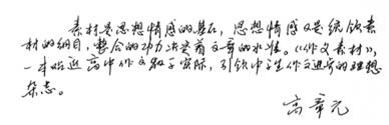 素材是思想情感的基石，思想情感又是统领素
材的纲目，整合的功力决定着文章的水准。《作文素材》，
一本贴近高中作文教学实际，引领中学生作文进步的理想
杂志。
高章元